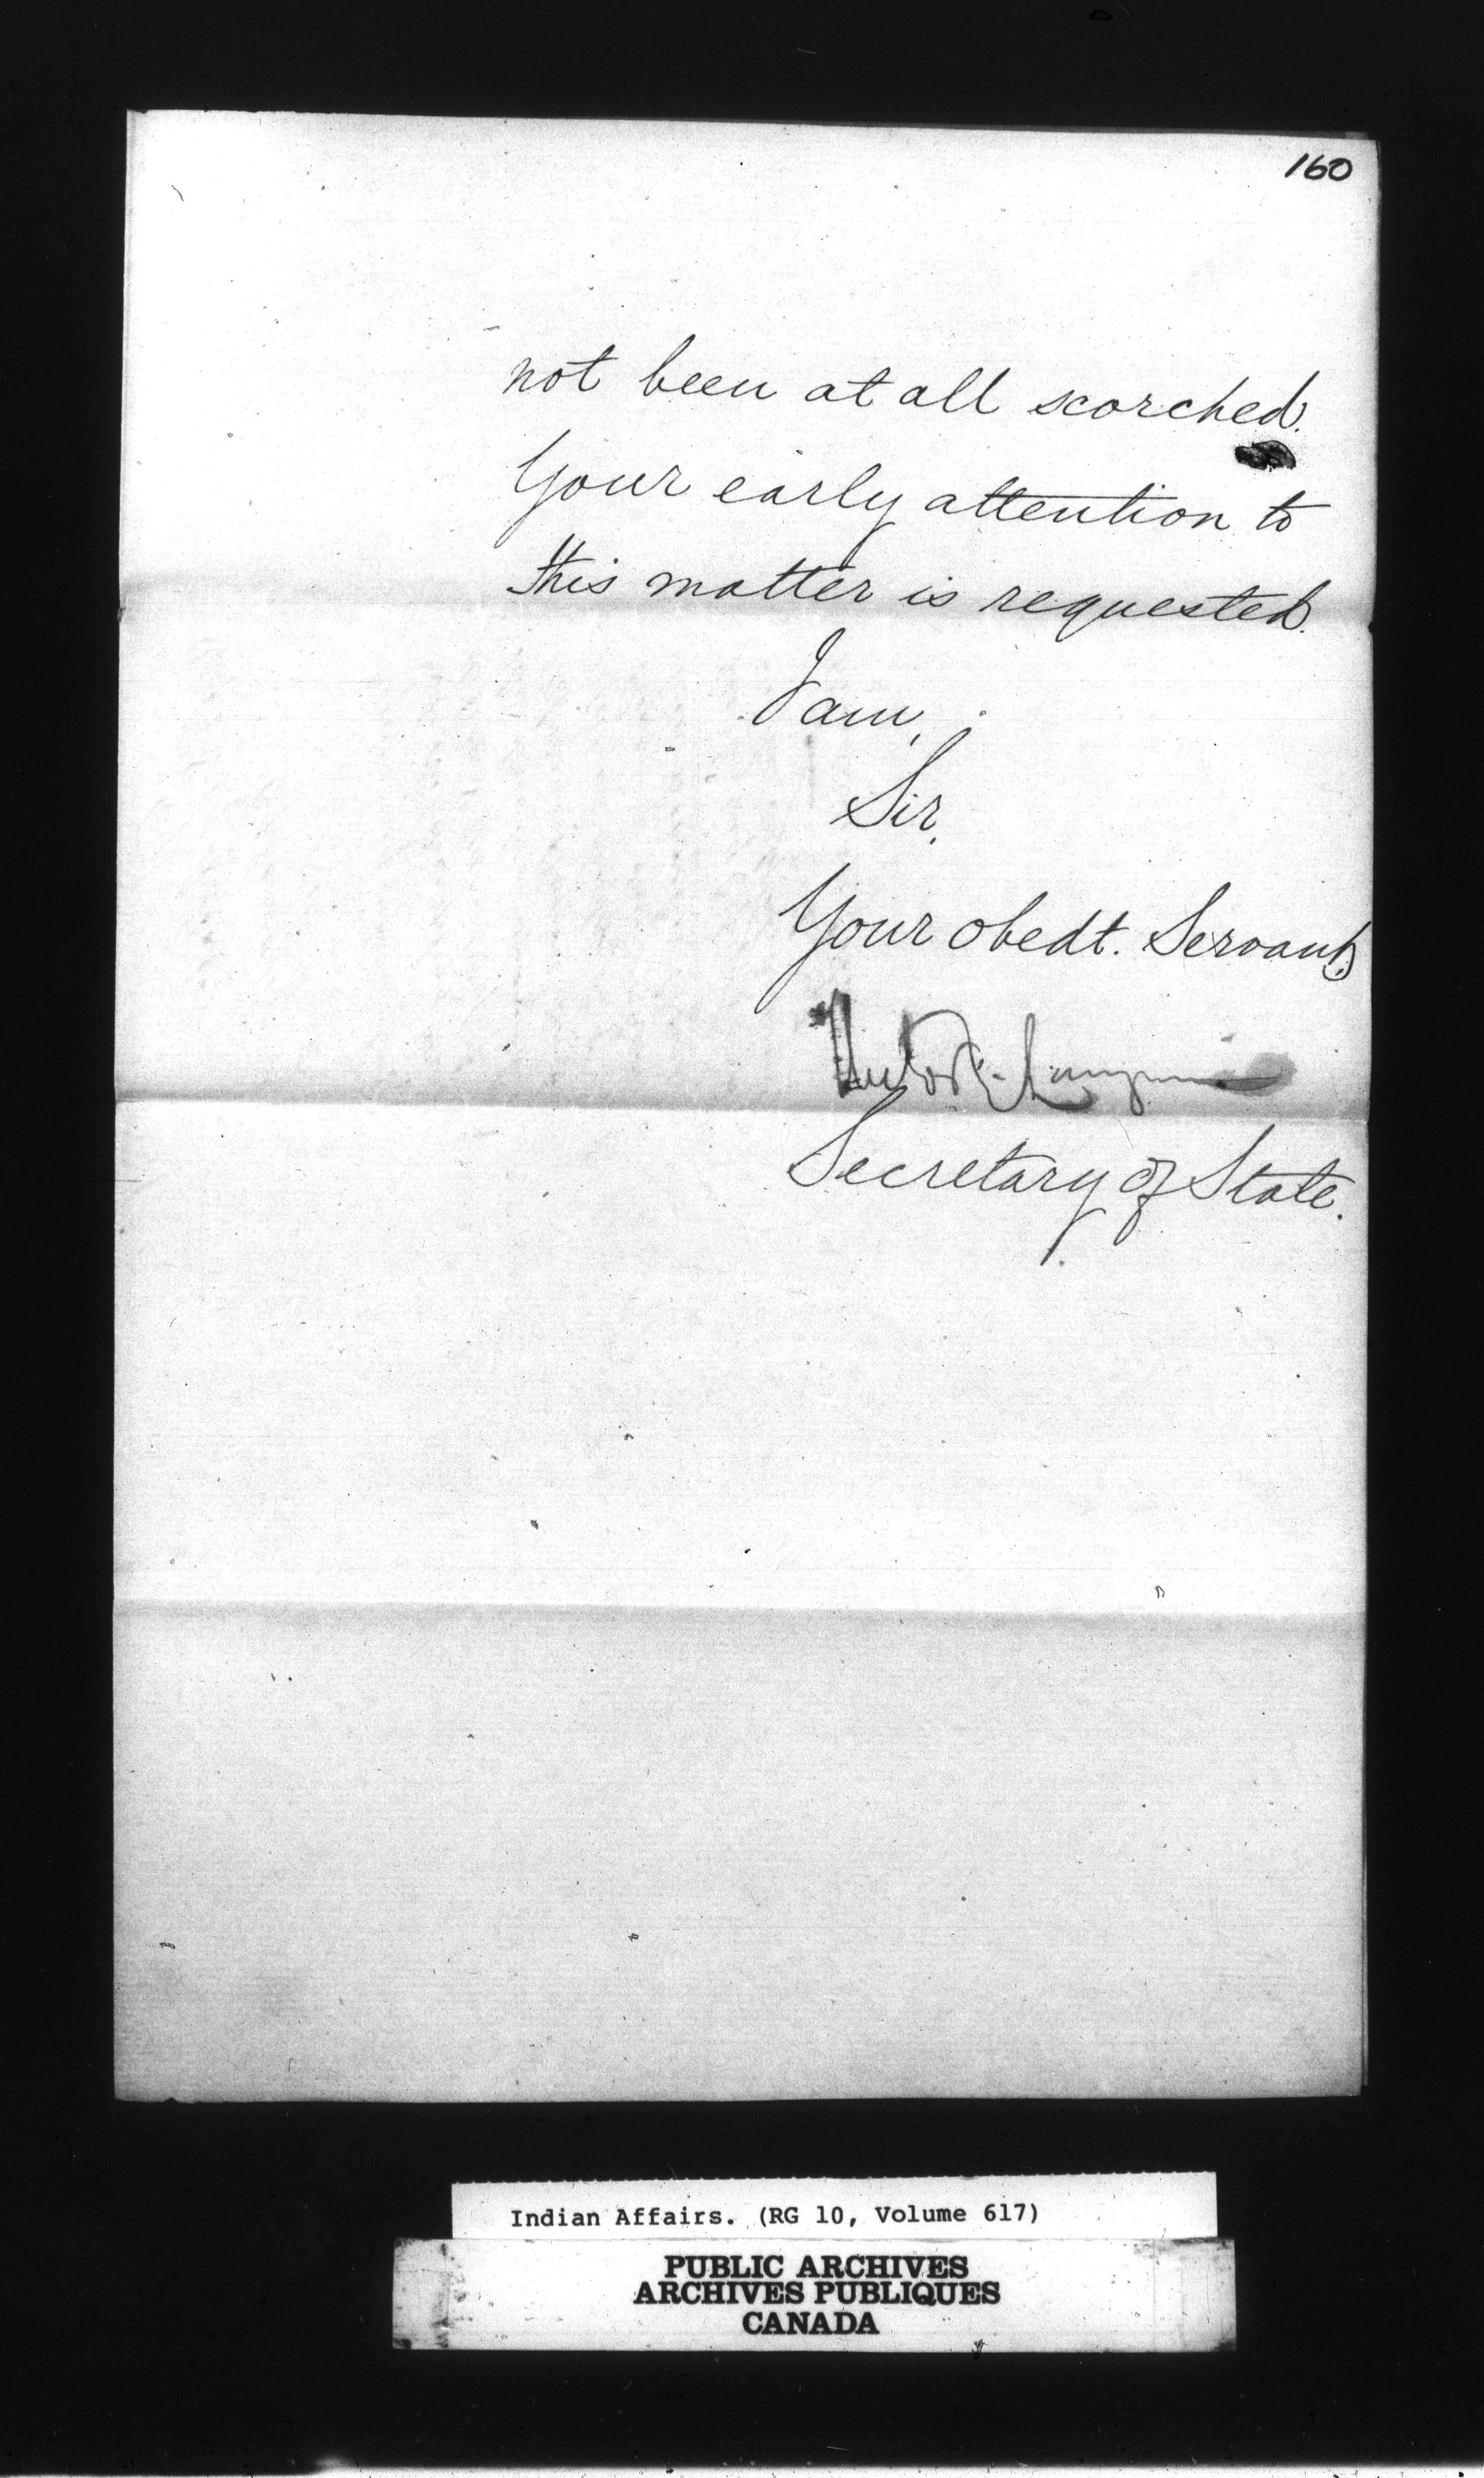 160
not been at all scorched.
Your early attention to
this matter is requested.
I am,
Sir,
Your obedt. Servant,
Secretary of State.
Indian Affairs. (RG 10, Volume 617)
PUBLIC ARCHIVES
ARCHIVES PUBLIQUES
CANADA